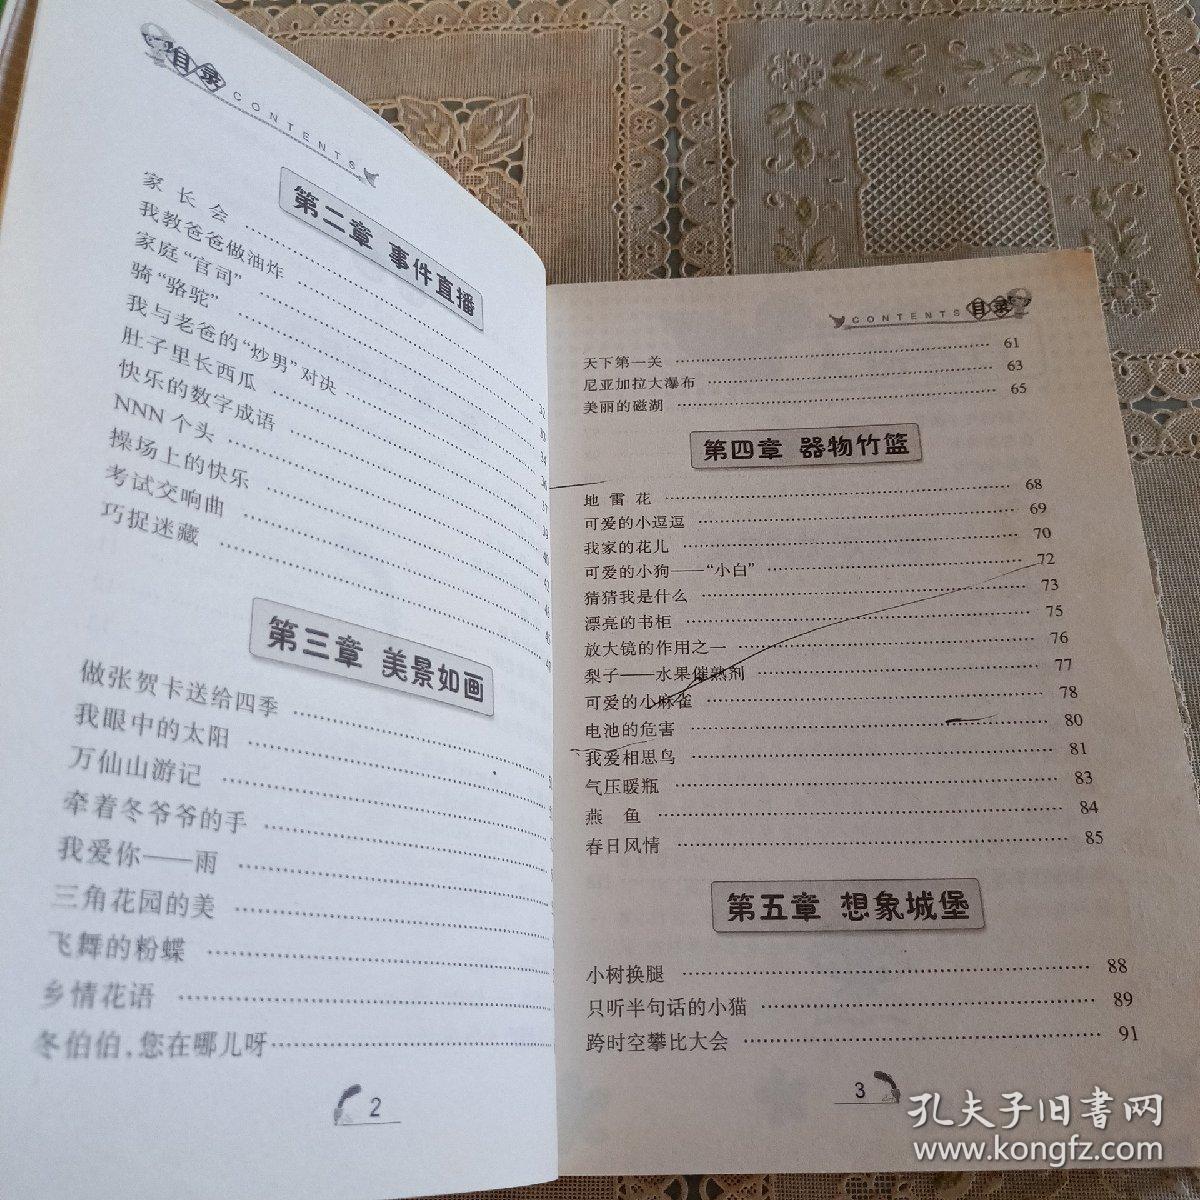 目录
CONTENTS
第二章 事件直播
家长会
我教爸爸做油炸
家庭“官司”
骑“骆驼”
我与老爸的“炒男”对决
肚子里长西瓜
快乐的数字成语
NNN个头
操场上的快乐
考试交响曲
巧捉迷藏
第三章 美景如画
做张贺卡送给四季
我眼中的太阳
万仙山游记
牵着冬爷爷的手
我爱你——雨
三角花园的美
飞舞的粉蝶
乡情花语
冬伯伯，您在哪儿呀
2
CONTENTS 目录
天下第一关 61
尼亚加拉大瀑布 63
美丽的磁湖 65
第四章 器物竹篮
地雷花 68
可爱的小逗逗 69
我家的花儿 70
可爱的小狗——“小白” 72
猜猜我是什么 73
漂亮的书柜 75
放大镜的作用之一 76
梨子——水果催熟剂 77
可爱的小麻雀 78
电池的危害 80
我爱相思鸟 81
气压暖瓶 83
燕鱼 84
春日风情 85
第五章 想象城堡
小树换腿 88
只听半句话的小猫 89
跨时空攀比大会 91
3
孔夫子旧书网
www.kongfz.com